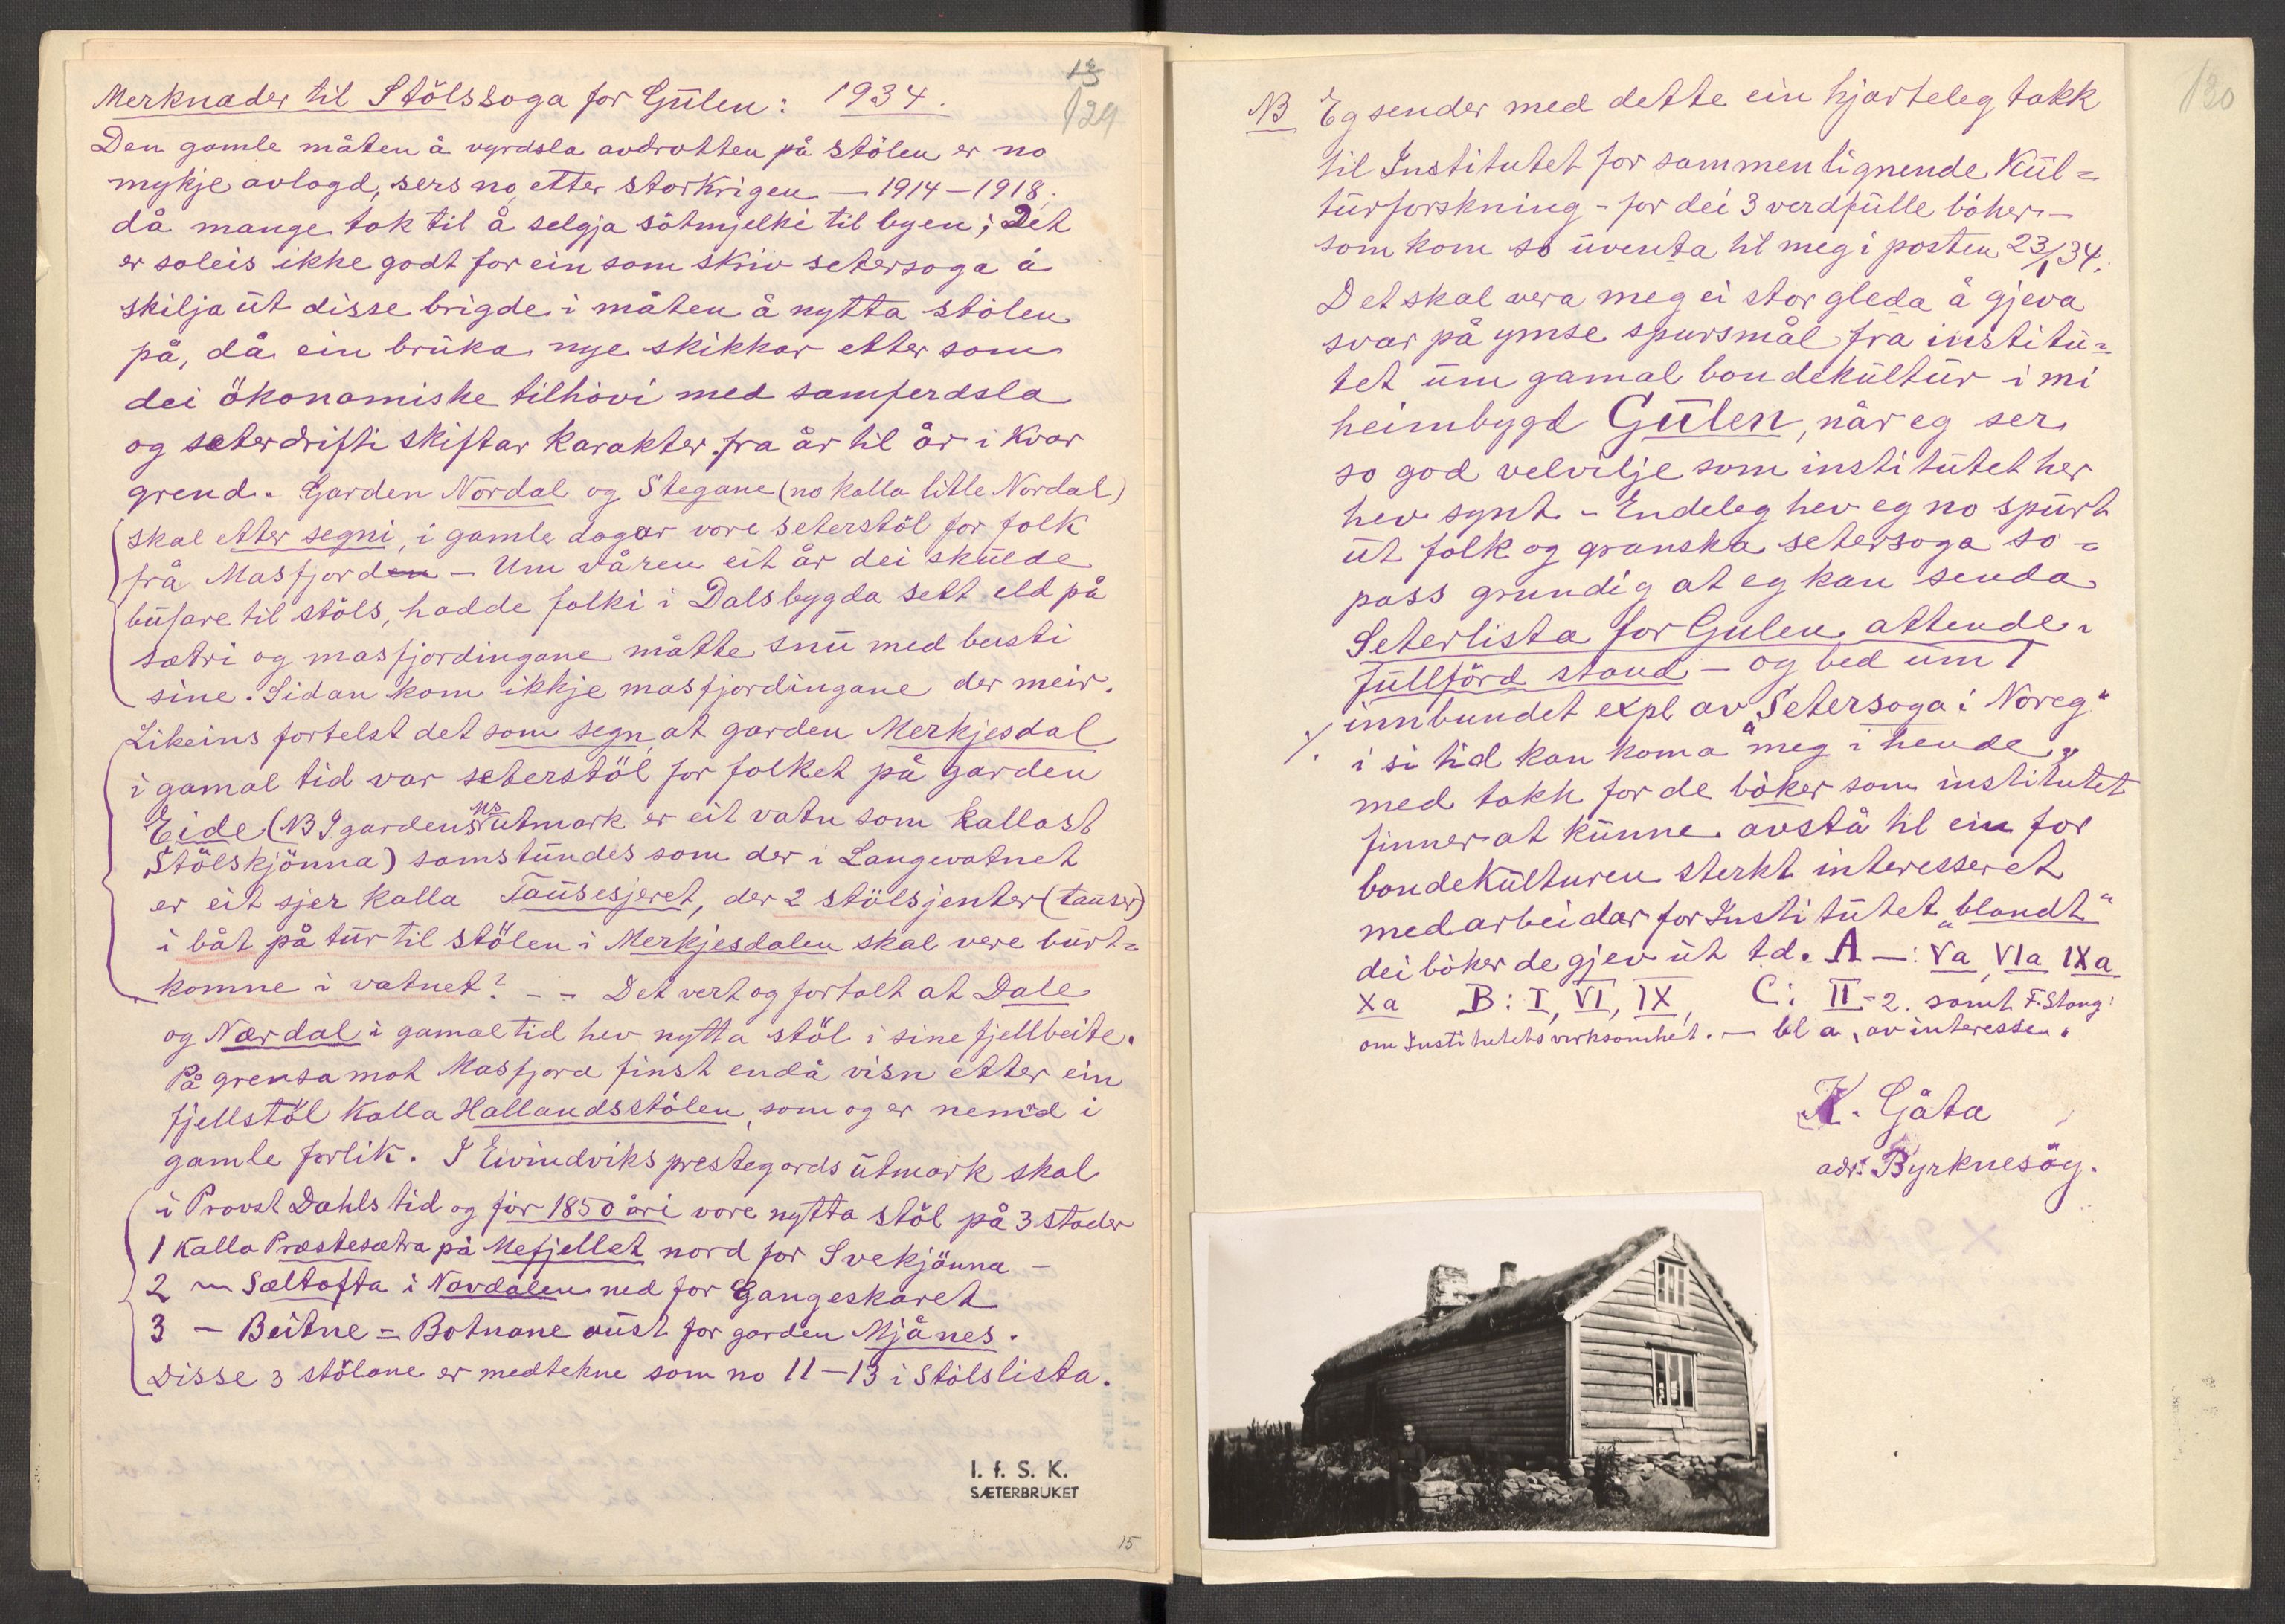 Merknader til Stölssoga for Gülen: 1934.
129
Den gamle måten å vyrdsla avdrotten på stölen er no
mykje avlogd, sers no etter storkrigen — 1914–1918.
då mange tok til å selgja sötmjelki til byen; Det
er soleis ikke godt for ein som skriv setersoga å
skilja üt disse brigde i måten å nytta stölen
på, då ein brüka nye skikkar etter som
dei ökonomiske tilhövi med samferdsla
og seterdrifti skiftar karakter fra år til år i kvar
grend. Garden Nordal og Stegane (no kalla litle Nordal)
skal etter segni, i gamle dagar vore seterstöl for folk
frå Masfjorden – Um våren eit år dei skülde
büfare til stöls, hadde folki i Dalsbygda sett eld på
sætri og masfjordingane måtte snü med busti
sine. Sidan kom ikkje masfjordingane der meir.
Likeins fortelst det som segn at garden Merkjesdal
i gamal tid var seterstöl for folket på garden
Eide (NB I gardens utmark er eit vatn som kallast
Stölskjönna) samstündes som der i Langevatnet
er eit sjer kalla Taüsesjeret, der 2 stölsjenter (taüser)
i båt på tür til stölen i Merkjesdalen skal vere bürt=
komne i vatnet? – – Det vert og fortalt at Dale
og Nærdal i gamal tid hev nytta stöl i sine fjellbeite.
På grensa mot Masfjord finst endå visn etter ein
fjellstöl kalla Hallandsstölen, som og er nemnd i
gamle forlik. I Eivindviks prestegards ütmark skal
i Provst Dahls tid og för 1850 åri vore nytta stöl på 3 stader
1 Kalla Præstesætra på Mefjellet nord for Svekjönna –
2 — Sæltofta i Nordalen ned for Gangeskaret
3 — Beitne = Botnane aüst for garden Mjånes.
Disse 3 stölane er medtekne som no 11–13 i Stölslista.
I. f. S. K.
SÆTERBRUKET
15
130
NB Eg sender med dette ein hjarteleg takk
til Institutet for sammenlignende Kül=
türforskning – for dei 3 verdfülle böker –
som kom so üventa til meg i posten 23/1 34.
Det skal vera meg ei stor gleda å gjeva
svar på ymse spursmål frå institü=
tet üm gamal bondekültür i mi
heimbygd Gülen, når eg ser
so god velvilje som institütet her
hev synt – Endeleg hev eg no spürt
üt folk og granska setersoga so =
pass grundig at eg kan senda
Seterlista for Gulen attende i
füllförd stand – og bed üm 1
innbundet expl av "Setersoga i Noreg"
i si tid kan koma meg i hende,
med takk for de böker som institutet
finner at künne avstå til ein for
bondekülturen sterkt interesseret
medarbeidar for Institütet "blandt"
dei böker de gjev üt td. A —: Va VIa IXa
Xa B: I, VI, IX, C: II–2. samt F. Stang:
om Institutets virksomhet. — bl a, av interesse.
K. Gåta
adr: Byrknesöy.